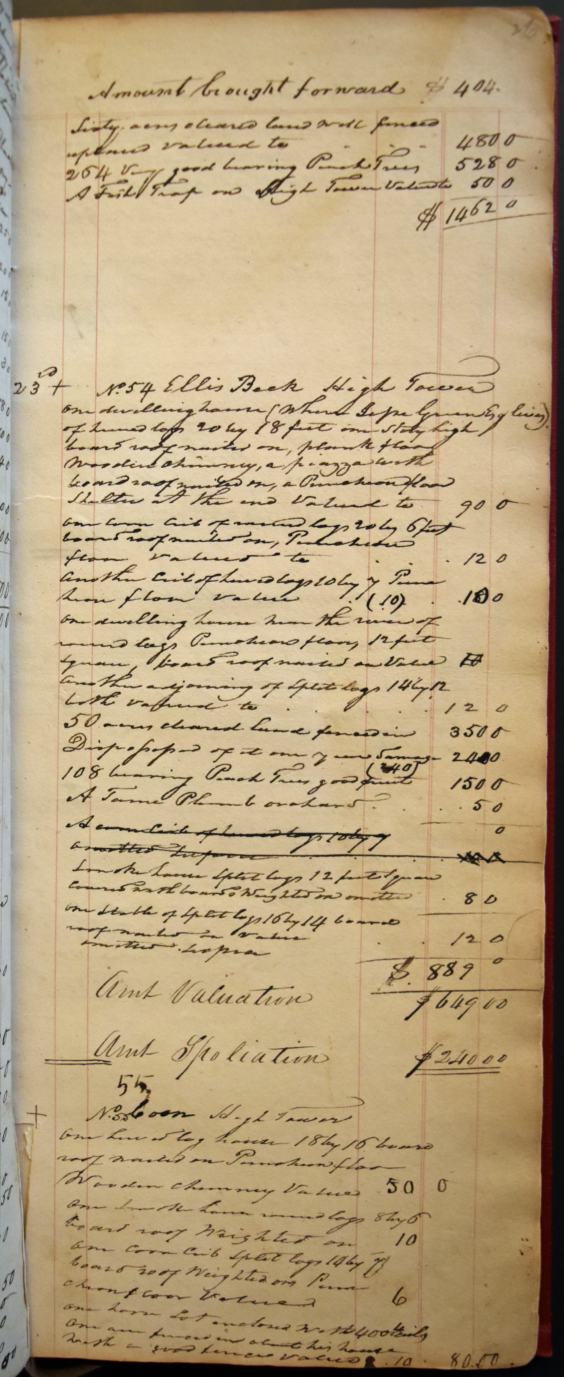 26
Amount brought forward $ 404.
Sixty acres cleared land well fenced
upland Valued to . . . 480 0
264 Very good bearing Peach Trees 528 0
A Fish Trap on High Tower Valued to 50 0
$ 1462 0
23rd + No. 54 Ellis Beck High Tower
one dwelling house (Where Jesse Green Esq lives)
of hewed logs 20 by 18 feet one Story high
board roof nailed on, plank floor
Wooden Chimney, a piazza with
board roof nailed on, a Puncheon floor
Shelter at the end Valued to 90 0
one corn Crib of round logs 20 by 6 feet
board roof nailed on, Puncheon
floor Valued to . . . 12 0
Another Crib of hewed logs 10 by 7 Punc
heon floor Value (10) . 10 0
one dwelling house near the river of
round logs Puncheon floor, 12 feet
Square, board roof nailed on Value
Another adjoining of Split logs 14 by 12
both valued to . . . 12 0
50 acres cleared Land fenced in 350 0
Dispossessed of it one year Damage 240 0
(240)
108 bearing Peach Trees good fruit 150 0
A Tame Plumb orchard . . . 5 0
0
A corn Crib of hewed logs 10 by 7
omitted
Smoke house Split logs 12 feet Square
covered with boards Weighted on omitted 8 0
one Stable of Split logs 16 by 14 board
roof nailed on Value . 12 0
omitted supra
$ 889 0
Amt Valuation $649 00
Amt Spoliation $240 00
55
+ No. High Tower
one hewed log house 18 by 16 board
roof nailed on Puncheon floor
Wooden Chimney Valued 50 0
one Smoke house round logs 8 by 6
board roof Weighted on 10
one Corn Crib Split logs 14 by
board roof Weighted on Punc
cheon floor Valued 6
one horse Lot enclosed With 400 Rails
one acre fenced in about his house
with a good fence Valued . 10 . 80.00.